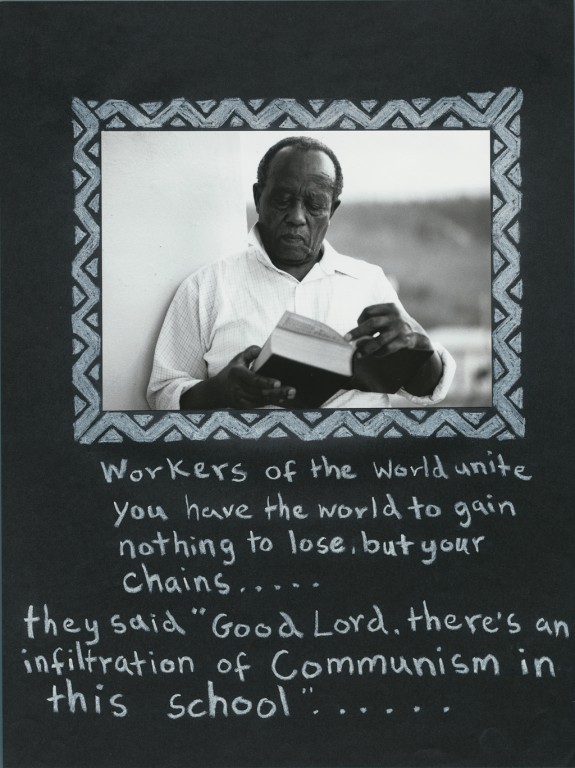 Workers of the world unite
you have the world to gain
nothing to lose, but your
chains.....
they said "Good Lord, there's an
infiltration of Communism in
this school"......